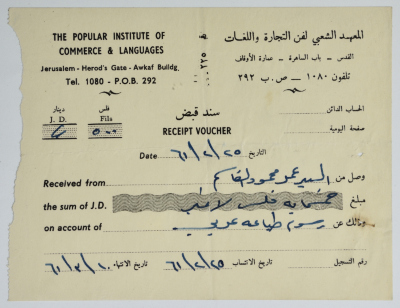 THE POPULAR INSTITUTE OF
COMMERCE & LANGUAGES
Jerusalem - Herod's Gate - Awkaf Buildg.
Tel. 1080 - P.O.B. 292
المعهد الشعبي لفن التجارة واللغات
القدس - باب الساهرة - عمارة الأوقاف
تلفون ١٠٨٠ - ص. ب ٢٩٢
دينار فلس
J. D. Fils
٥٠٠
سند قبض
RECEIPT VOUCHER
الحساب الدائن
صفحة اليومية
Date ٦١/٢/٢٥ التاريخ
Received from السيد عمر محمود القاسم وصل من
the sum of J.D. خمسماية فلس لا غير مبلغ
on account of رسوم طباعة عربي وذلك عن
رقم التسجيل
تاريخ الانتساب ٦١/٢/٢٥
تاريخ الانتهاء